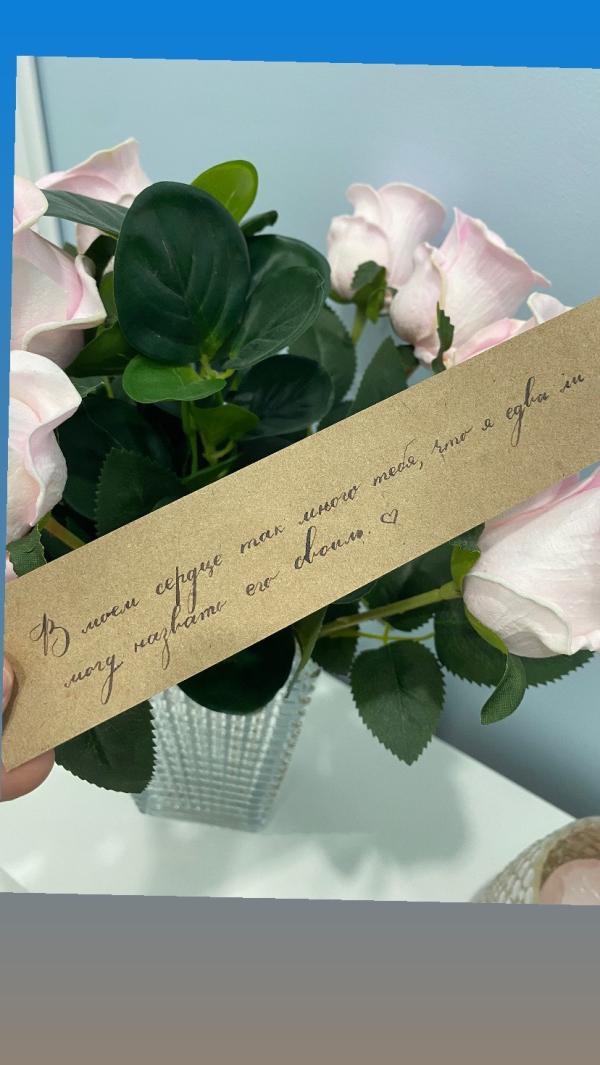 В моем сердце так много тебя, что я едва ли
могу назвать его своим. ♡